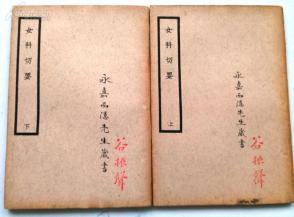 女科切要
上
永嘉西溪先生藏書
谷振聲
女科切要
下
永嘉西溪先生藏書
谷振聲